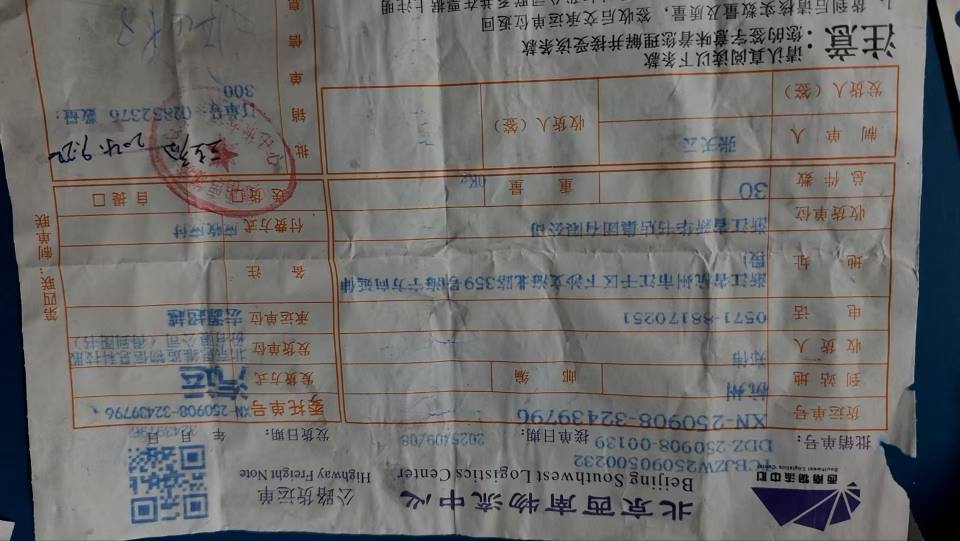 西南物流中心
Southwest Logistics Center
北京西南物流中心
Beijing Southwest Logistics Center
公路货运单
Highway Freight Note
CBJZW25090500232
批销单号：DDZ-250908-00139
接单日期：2025/09/08
发货日期： 年 月 日
货运单号
XN-250908-32439796
委托单号
XN-250908-32439796
到站地
杭州
邮编
发货方式
汽运
收货人
郑伟
发货单位
电话
0571-88170251
承运单位
宏源超越
地址
浙江省杭州市江干区下沙文海北路359号(海宁方向延伸
段)
备注
收货单位
浙江省新华书店集团有限公司
付费方式
应收应付
总件数
30
重量
0Kg
送货 口 自提 口
制单人
张天云
收货人（签）
发货人（签）
批销单信息
订单号：02832376 数量：
300
第四联：制单联
注意：
请认真阅读以下条款
您的签字意味着您理解并接受该条款
1、货到后请核实数量及质量，签收后交承运单位返回